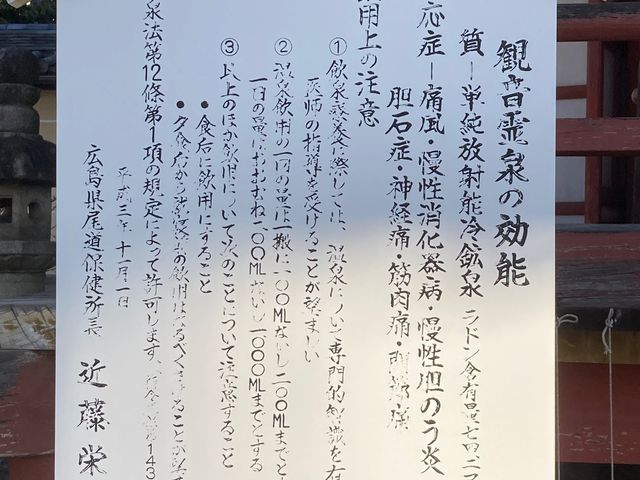 観音霊泉の効能
質ー単純放射能冷鉱泉 ラドン含有量七四・二マ
応症ー痛風・慢性消化器病・慢性胆のう炎
胆石症・神経痛・筋肉痛・関節痛
用上の注意
① 飲泉療養に際しては、温泉について専門的知識を有
医師の指導を受けることが望ましい
② 温泉飲用の一回の量は一般に一〇〇MLないし二〇〇MLまでと
一日の量はおおむね二〇〇MLないし一〇〇〇MLまでとする
③ 以上のほか飲用について次のことについて注意すること
●食后に飲用にすること
●夕食后から就寝前の飲用はなるべくさけることが望
泉法第12條第1項の規定によって許可します
143
平成三年十一月一日
広島県尾道保健所長 近藤栄